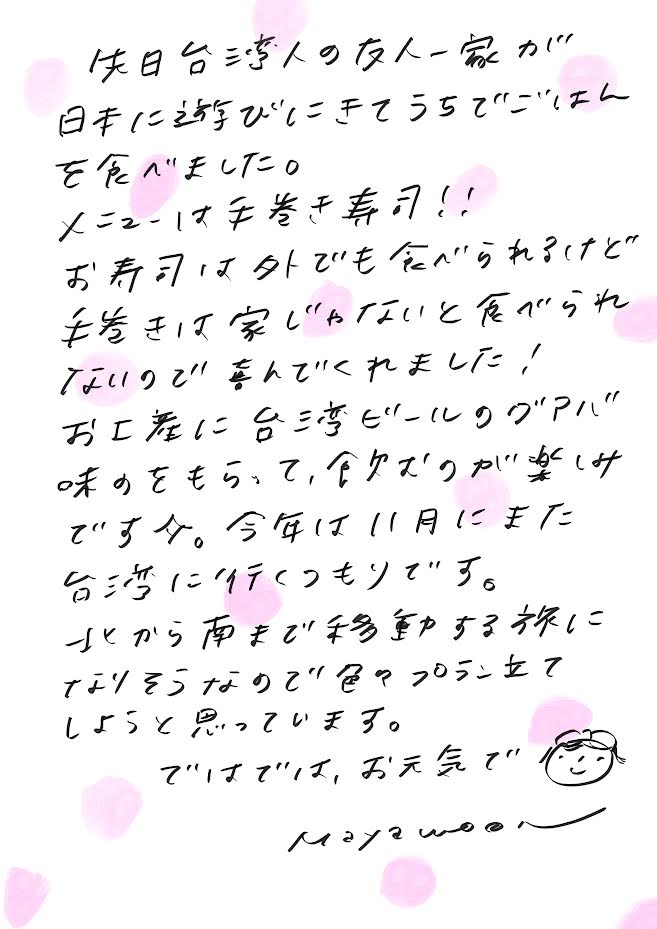 先日台湾人の友人一家が
日本に遊びにきてうちでごはん
を食べました。
メニューは手巻き寿司!!
お寿司は外でも食べられるけど
手巻きは家じゃないと食べられ
ないので喜んでくれました!
お土産に台湾ビールのグアバ
味のをもらって、飲むのが楽しみ
です。今年は11月にまた
台湾に行くつもりです。
北から南まで移動する旅に
なりそうなので色々プラン立て
しようと思っています。
ではでは、お元気で
Maya moon